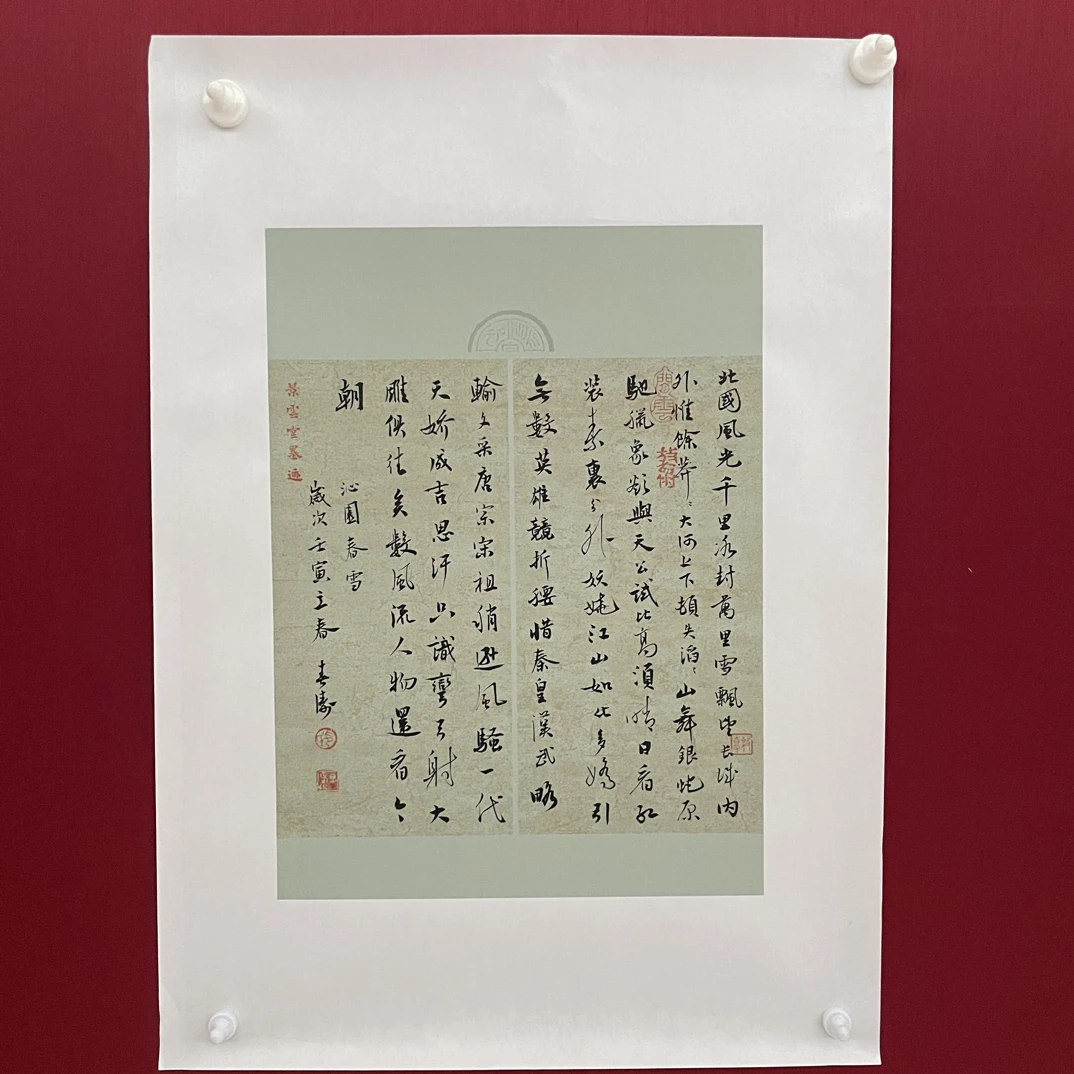 北國風光千里冰封萬里雪飄望長城內
外惟餘莽〻大河上下頓失滔〻山舞銀蛇原
馳臘象欲與天公試比高須晴日看紅
裝素裹分外妖嬈江山如此多嬌引
無數英雄競折腰惜秦皇漢武略
輸文采唐宗宋祖稍遜風騷一代
天嬌成吉思汗只識彎弓射大
雕俱往矣數風流人物還看今
朝
沁園春雪
歲次壬寅立春
景雲堂墨迹